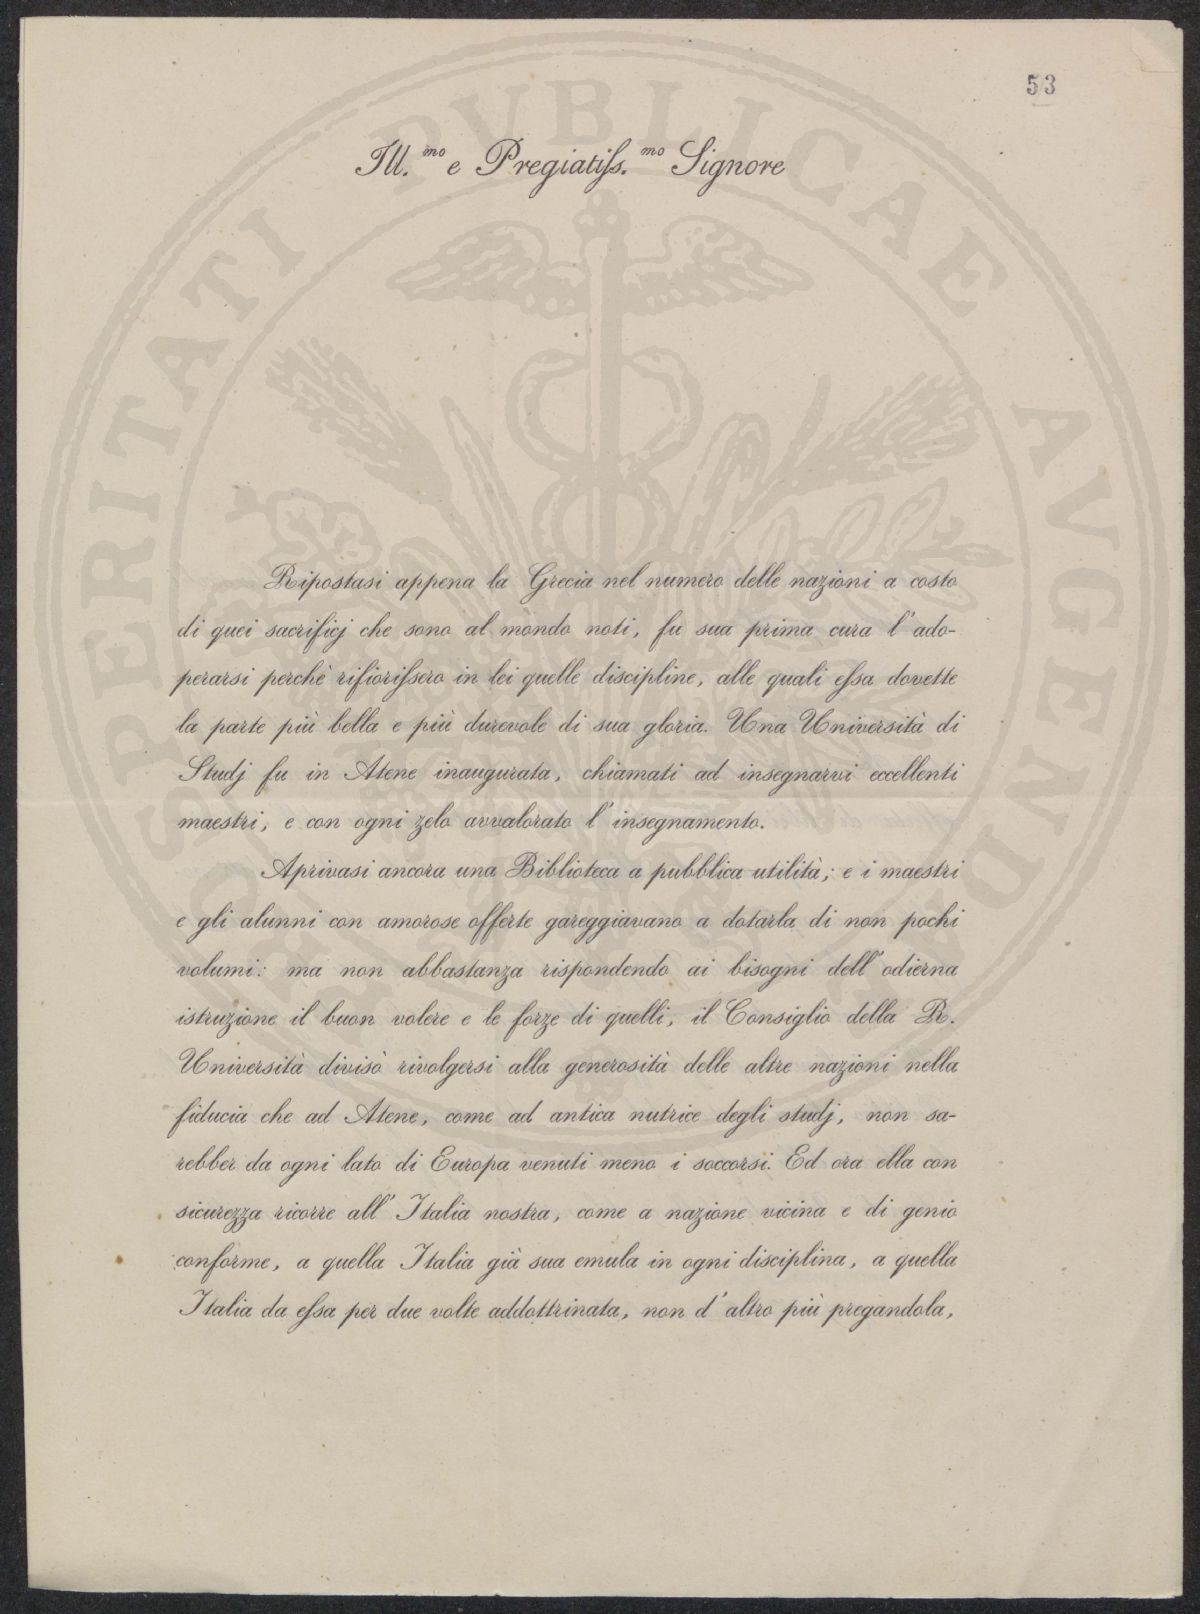 53
Ill.mo e Pregiatiss.mo Signore
Ripostasi appena la Grecia nel numero delle nazioni a costo
di quei sacrificj che sono al mondo noti, fu sua prima cura l'ado-
perarsi perchè rifiorissero in lei quelle discipline, alle quali essa dovette
la parte più bella e più durevole di sua gloria. Una Università di
Studj fu in Atene inaugurata, chiamati ad insegnarvi eccellenti
maestri, e con ogni zelo avvalorato l'insegnamento.
Aprivasi ancora una Biblioteca a pubblica utilità; e i maestri
e gli alunni con amorose offerte gareggiavano a dotarla di non pochi
volumi: ma non abbastanza rispondendo ai bisogni dell'odierna
istruzione il buon volere e le forze di quelli, il Consiglio della R.
Università divisò rivolgersi alla generosità delle altre nazioni nella
fiducia che ad Atene, come ad antica nutrice degli studj, non sa-
rebber da ogni lato di Europa venuti meno i soccorsi. Ed ora ella con
sicurezza ricorre all'Italia nostra, come a nazione vicina e di genio
conforme, a quella Italia già sua emula in ogni disciplina, a quella
Italia da essa per due volte addottrinata, non d'altro più pregandola,
PROSPERITATI PVBLICAE AVGENDAE